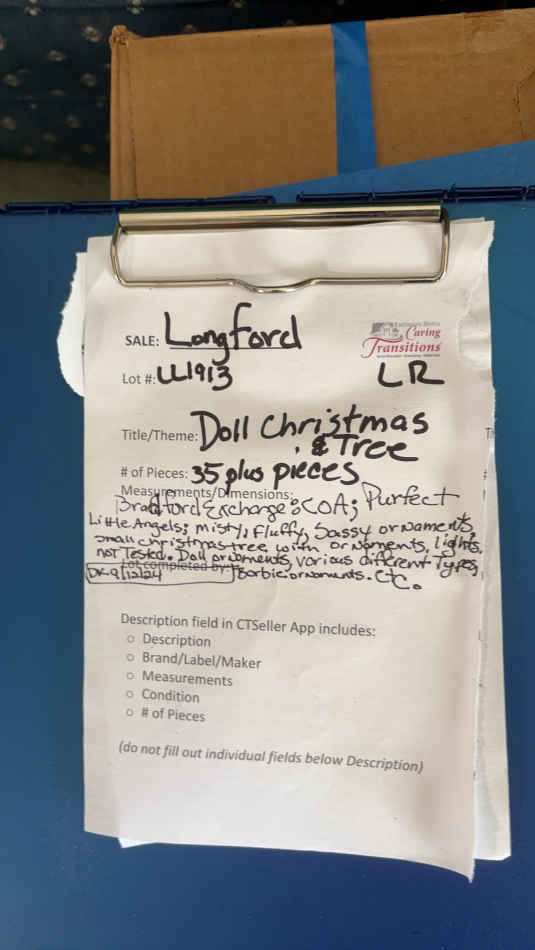 SALE: Longford
Caring
Transitions
Lot #: LL1913 LR
Title/Theme: Doll Christmas
& Tree
# of Pieces: 35 plus pieces
Measurements/Dimensions:
Bradford Exchange: COA; Purfect
Little Angels; Misty, Fluffy, Sassy ornaments,
small christmas tree with ornaments, lights,
not Tested. Doll ornaments, various different Types,
Lot completed by: Barbie ornaments. Etc.
DK 9/12/24
Description field in CTSeller App includes:
o Description
o Brand/Label/Maker
o Measurements
o Condition
o # of Pieces
(do not fill out individual fields below Description)